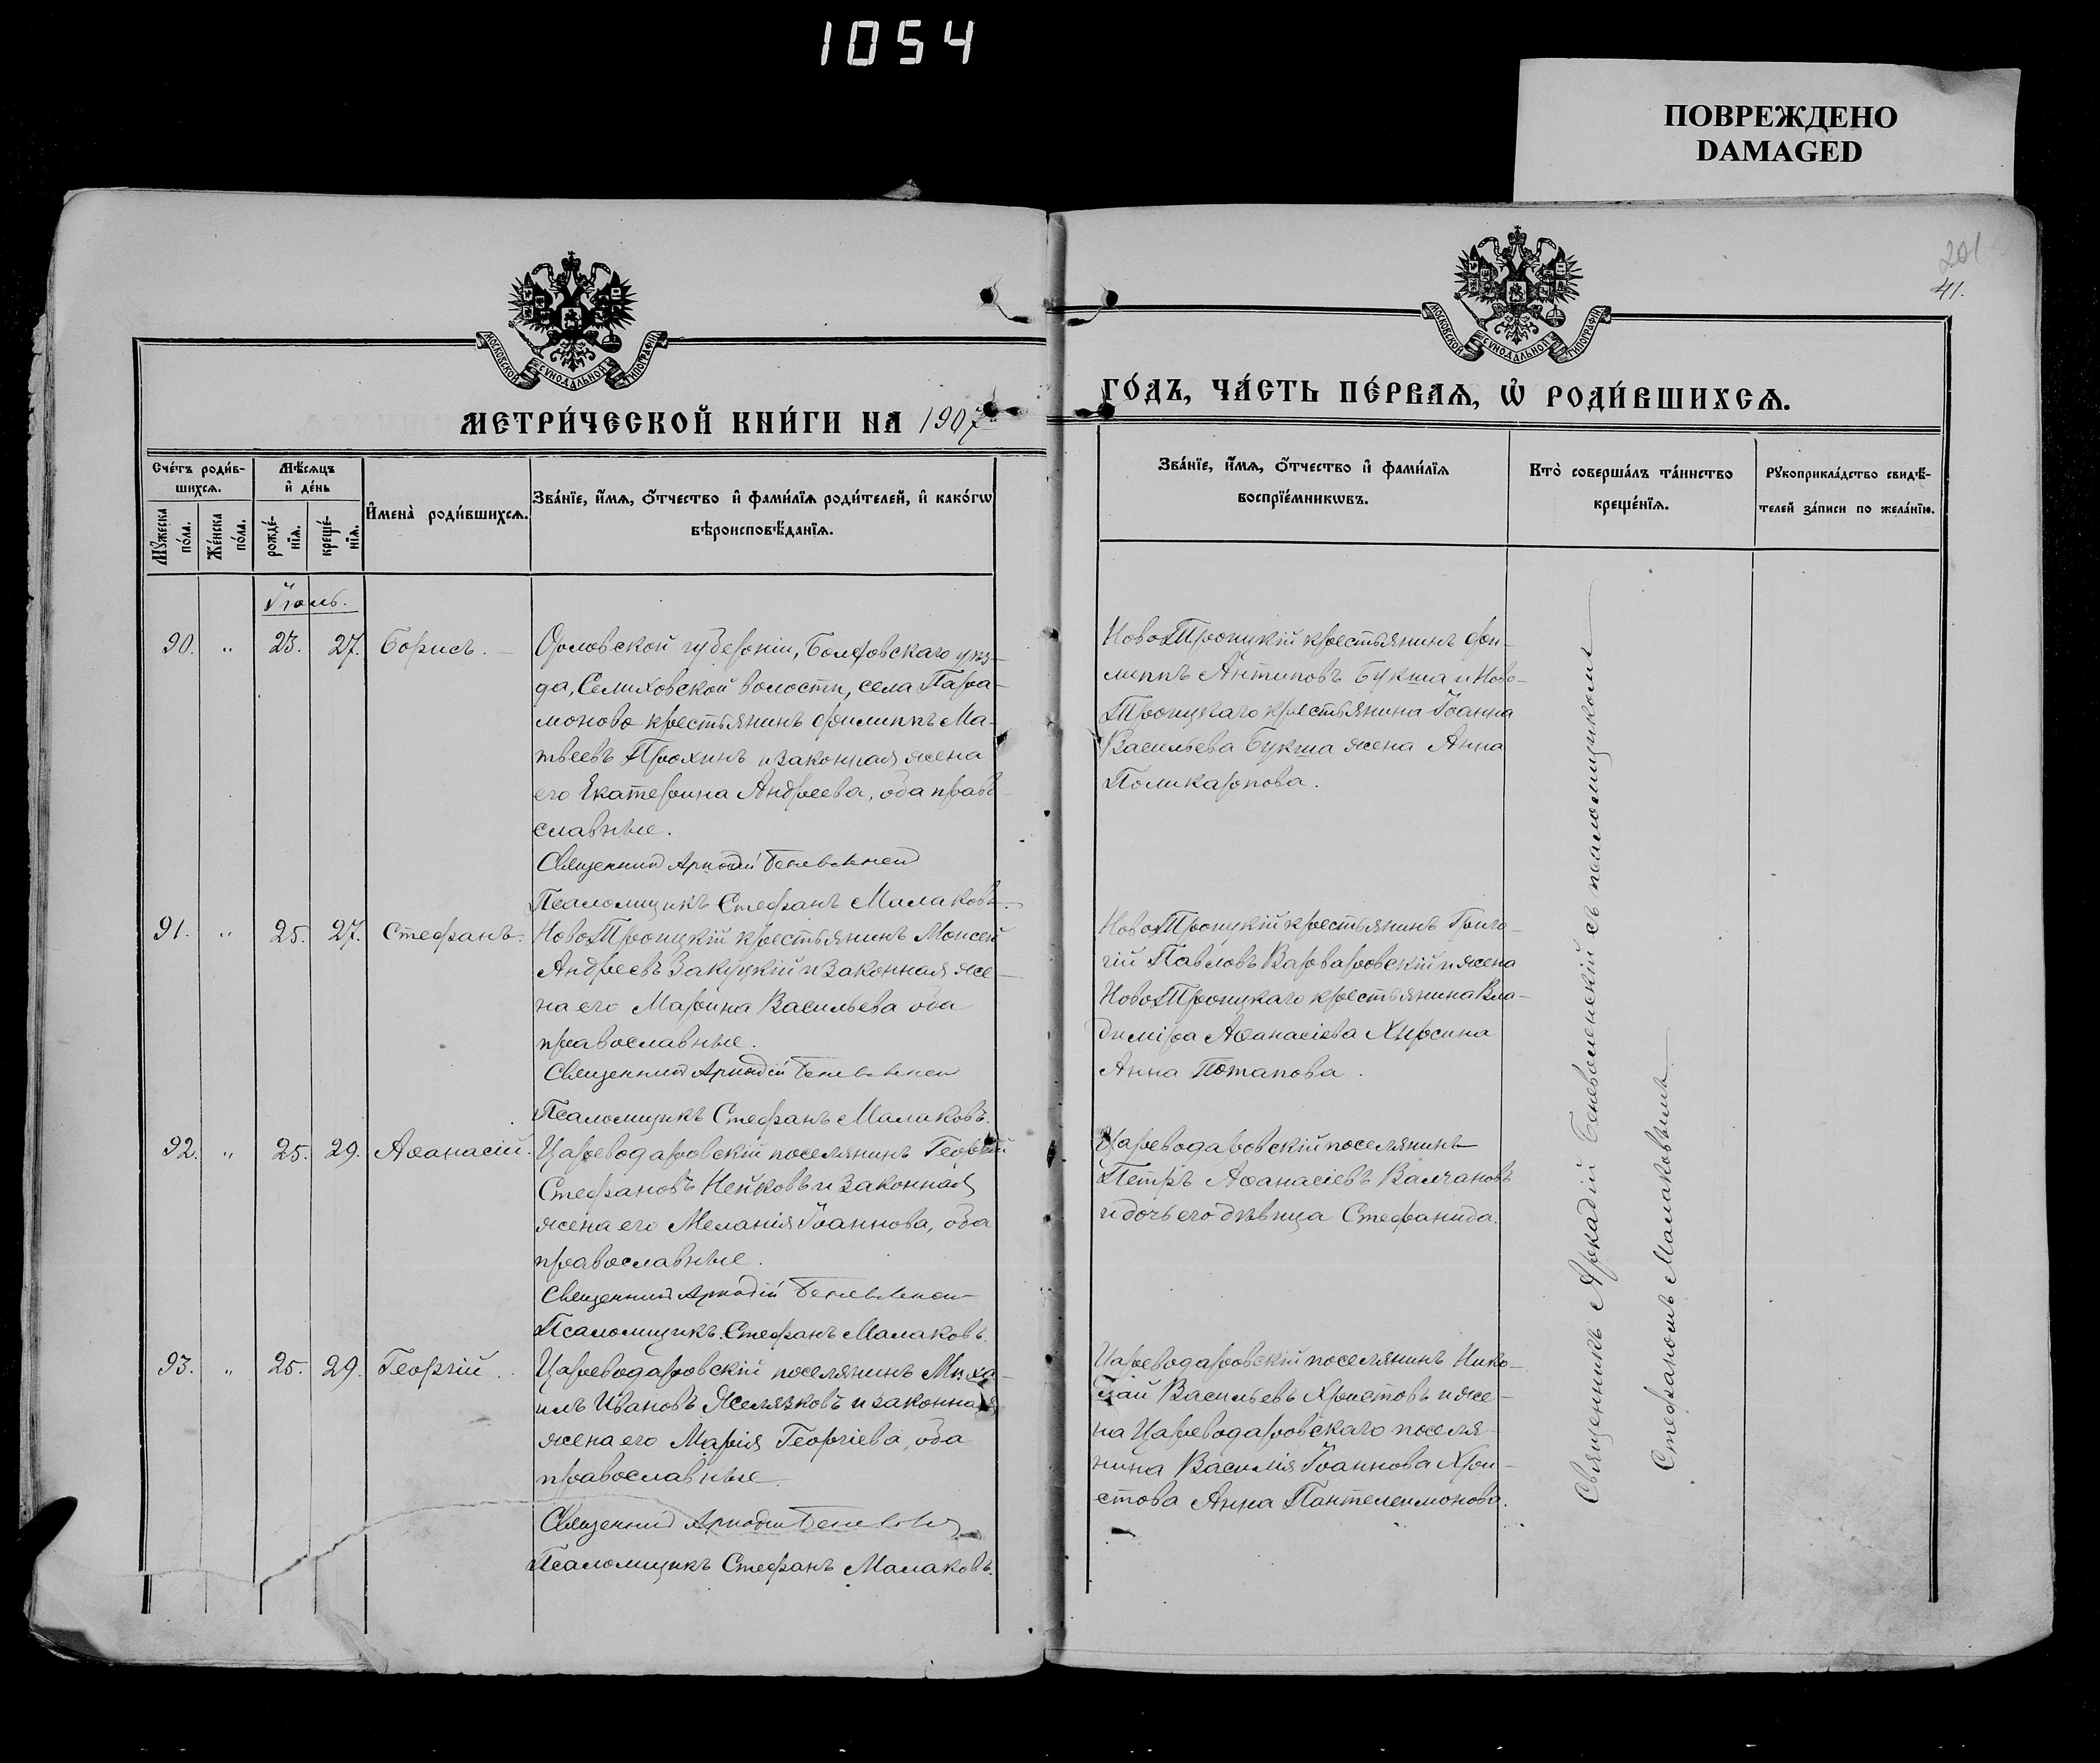 1054
ПОВРЕЖДЕНО
DAMAGED
201
41.
МОСКОВСКОЙ СУНОДАЛЬНОЙ ТИПОГРАФІИ
МОСКОВСКОЙ СУНОДАЛЬНОЙ ТИПОГРАФІИ
МЕТРИ́ЧЕСКОЙ КНИ́ГИ НА 1907
ГО́ДЪ, ЧА́СТЬ ПЕ́РВАѦ, Ѡ҆ РОДИ́ВШИХСѦ.
Сче́тъ роди́в-
шихсѧ.
Мꙋ́жеска по́ла.
Же́нска по́ла.
Мѣ́сѧцъ
и҆ де́нь
рожде́-
нїѧ.
креще́-
нїѧ.
И҆мена̀ роди́вшихсѧ.
Зва́нїе, и҆́мѧ, ѻ҆́тчество и҆ фами́лїѧ роди́телей, и҆ како́гѡ
вѣроисповѣ́данїѧ.
Зва́нїе, и҆́мѧ, ѻ҆́тчество и҆ фами́лїѧ
воспрїе́мникѡвъ.
Кто̀ соверша́лъ та́инство
креще́нїѧ.
Рꙋкоприкла́дство свидѣ́-
телей за́писи по жела́нїю.
Іюль.
90. " 23. 27. Борисъ.
Орловской губерніи, Болховскаго уѣз-
да, Селиховской волости, села Пара-
моново крестьянинъ Филиппъ Ма-
твеевъ Прохинъ и законная жена
его Екатерина Андреева, оба право
славные.
Священникъ Аркадій Беневоленскій
Псаломщикъ Стефанъ Малаковъ.
НовоТроицкій крестьянинъ Фи-
липпъ Антиповъ Букша и Ново-
Троицкаго крестьянина Іоанна
Васильева Букша жена Анна
Поликарпова.
91. " 25. 27. Стефанъ.
НовоТроицкій крестьянинъ Моисей
Андреевъ Закуцкій и законная же-
на его Марина Васильева оба
православные.
Священникъ Аркадій Беневоленскій
Псаломщикъ Стефанъ Малаковъ.
НовоТроицкій крестьянинъ Григо-
рій Павловъ Варваровскій и жена
НовоТроицкаго крестьянина Вла-
диміра Аѳанасіева Хирсина
Анна Потапова.
92. " 25. 29. Аѳанасій.
Цареводаровскій поселянинъ Георгій
Стефановъ Нейковъ и законная
жена его Меланія Іоаннова, оба
православные.
Священникъ Аркадій Беневоленскій
Псаломщикъ Стефанъ Малаковъ.
Цареводаровскій поселянинъ
Петръ Аѳанасіевъ Валчановъ
и дочь его дѣвица Стефанида.
93. " 25. 29. Георгій.
Цареводаровскій поселянинъ Миха-
илъ Ивановъ Желязковъ и законная
жена его Марія Георгіева, оба
православные.
Священникъ Аркадій Беневоленскій
Псаломщикъ Стефанъ Малаковъ.
Цареводаровскій поселянинъ Нико-
лай Васильевъ Христовъ и же-
на Цареводаровскаго поселя-
нина Василія Іоаннова Хри-
стова Анна Пантелеимонова.
Священникъ Аркадій Беневоленскій съ псаломщикомъ
Стефаномъ Малаковымъ